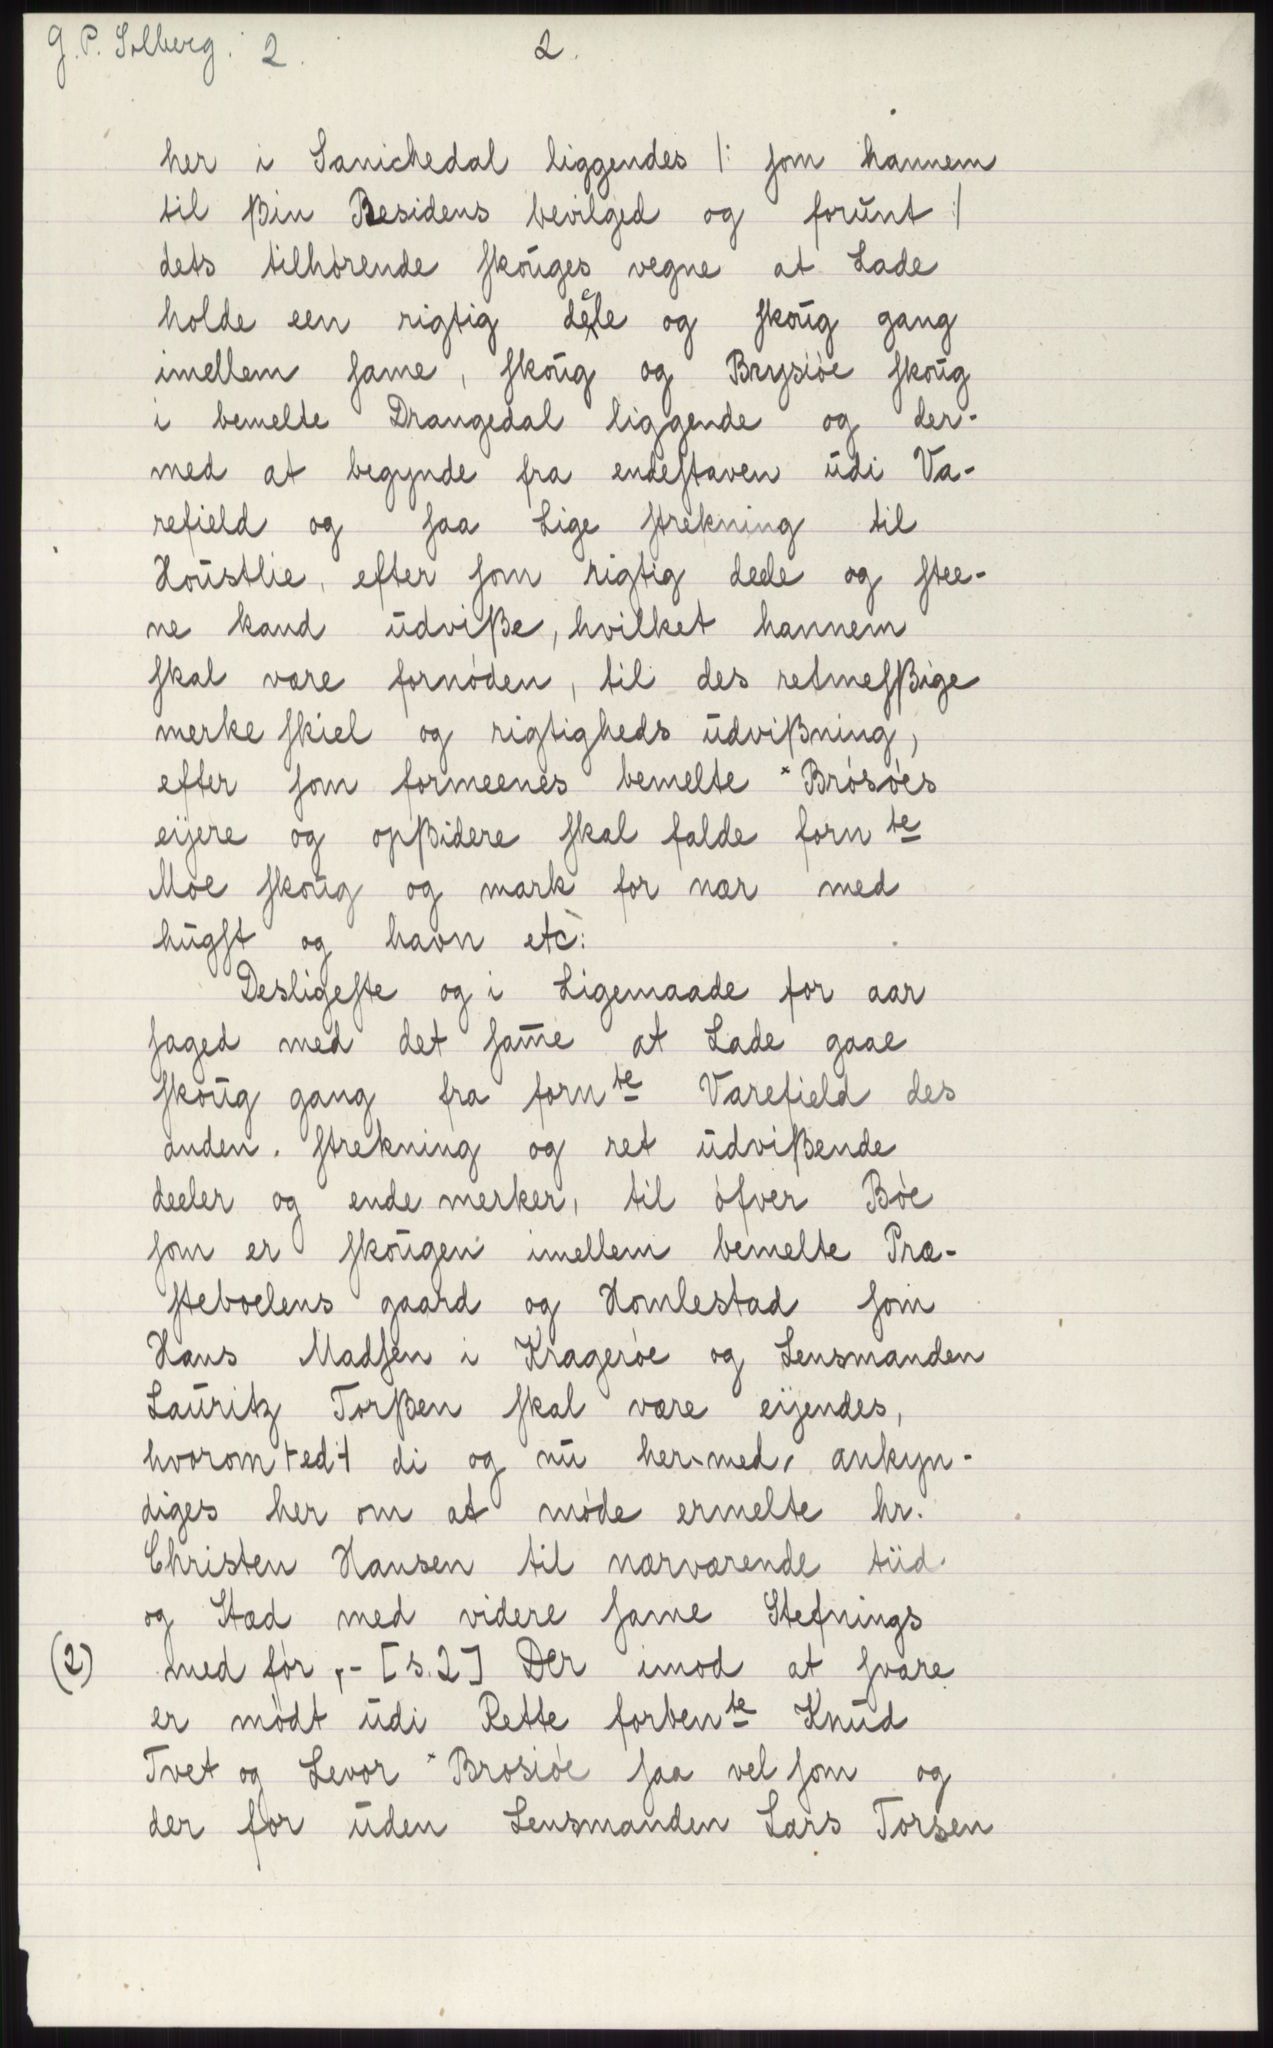 G. P. Solberg. 2.
2.
her i Sanickedal liggendes /: som hannem
til ßin Residens bevilged og forunt :/
dets tilhørende skouges vegne at Lade
holde een rigtig deele og skoug gang
imellem same, skoug og Brysiøe skoug
i bemelte Drangedal liggende og der-
med at begynde fra endestaven udi Va-
refield og saa Lige strekning til
Houstlie, efter som rigtig dede og stee-
ne kand udviße, hvilket hannem
skal være fornøden, til des retmesßige
merke skiel og rigtigheds udvißning,
efter som formeenes bemelte *Brøsøes
eijere og opßidere skal falde forn te
Moe skoug og mark for nær med
hugst og havn etc:
Desligeste og i Ligemaade for aar
saged med det same at Lade gaae
skoug gang fra forn te Varefield des
anden. strekning og ret udvißende
deeler og ende merker, til øfver Bøe
som er skougen imellem bemelte Præ-
steboelens gaard og Homlestad som
Hans Madsen i Kragerøe og Lensmanden
Lauritz Torßen skal være eijendes,
hvorom t ed t di og nu her med, ankyn-
diges her om at møde ermelte hr.
Christen Hansen til nærværende tiid
og Stæd med videre same Stefnings
(2) med før ,- [s. 2] Der imod at svare
er mødt udi Rette forben te Knud
Tvet og Levor *Brosiøe saa vel som og
der for uden Lensmanden Lars Torsen